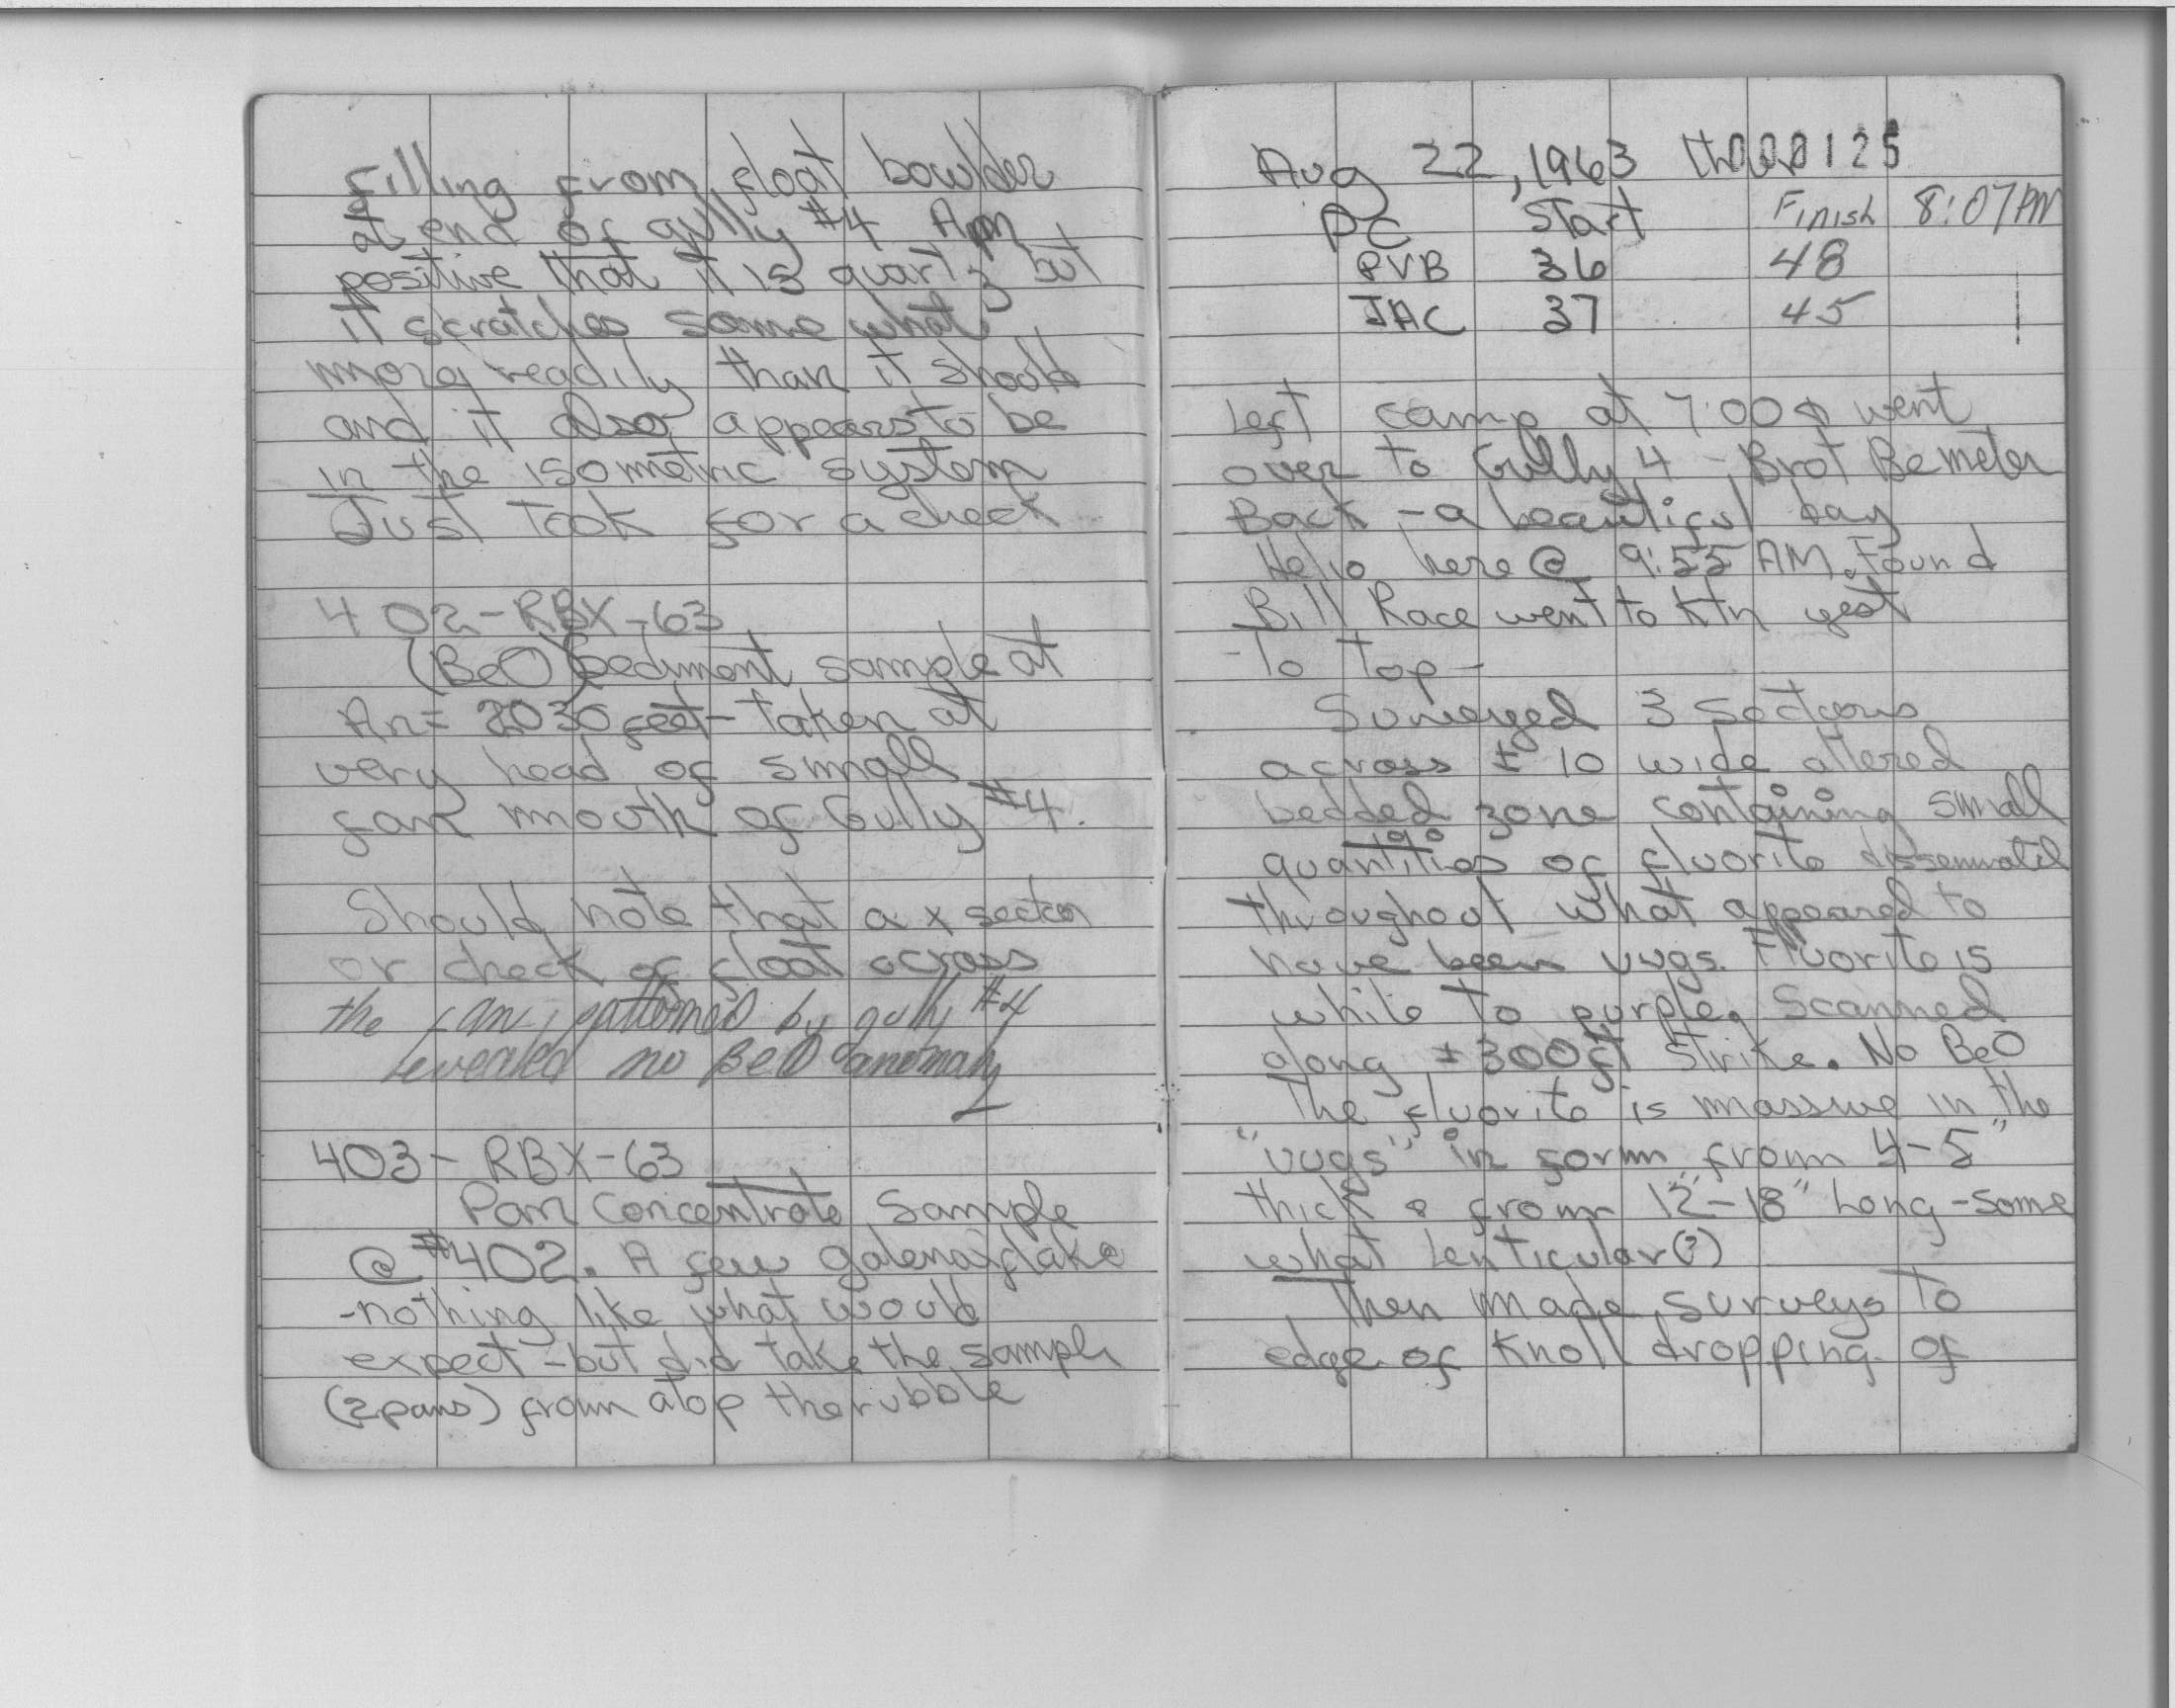 Filling from float boulder
at end of gully #4 Am
positive that it is quartz but
it scratches some what
more readily than it should
and it also appears to be
in the isometric system
Just Took for a check
402-RBX-63
(BeO) Sediment sample at
An= 2030 feet - taken at
very head of small
fan mouth of Gully #4.
Should note that a x section
or check of float across
the fan, pattomed by gully #4
revealed no BeO anomaly
403- RBX-63
Pan Concentrate Sample
@ #402. A few galena flake
-nothing like what would
expect -but did take the sample
(2pans) from atop the rubble
Aug 22, 1963 th 000125
PC Start Finish 8:07PM
PVB 36 48
JAC 37 45
Left camp at 7:00 & went
over to Gully 4 - Brot Be meter
Back - a beautiful day
Helio here @ 9:55 AM. Found
Bill Race went to Ktn yest
- To Top -
Surveyed 3 Sections
across ± 10 wide altered
bedded zone containing small
quantities of fluorite disseminated
throughout what appeared to
have been vugs. Fluorite is
white to purple. Scanned
along ±300ft strike. No BeO
The fluorite is massive in the
"vugs" in form from 4-5"
thick & from 12"-18" Long - some
what Lenticular(?)
Then made surveys to
edge of Knoll dropping of